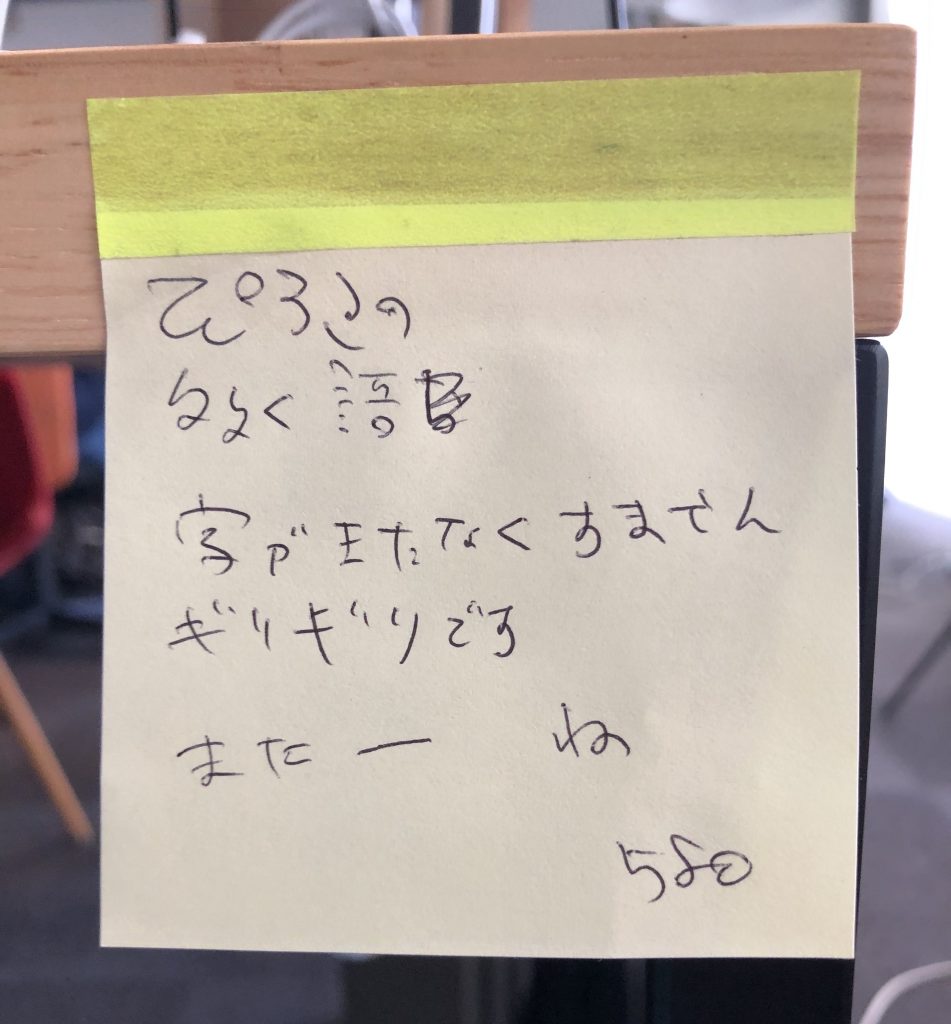 ぴろきの
多く語
字がまたなくすまでん
ギリギリです
またーね
580